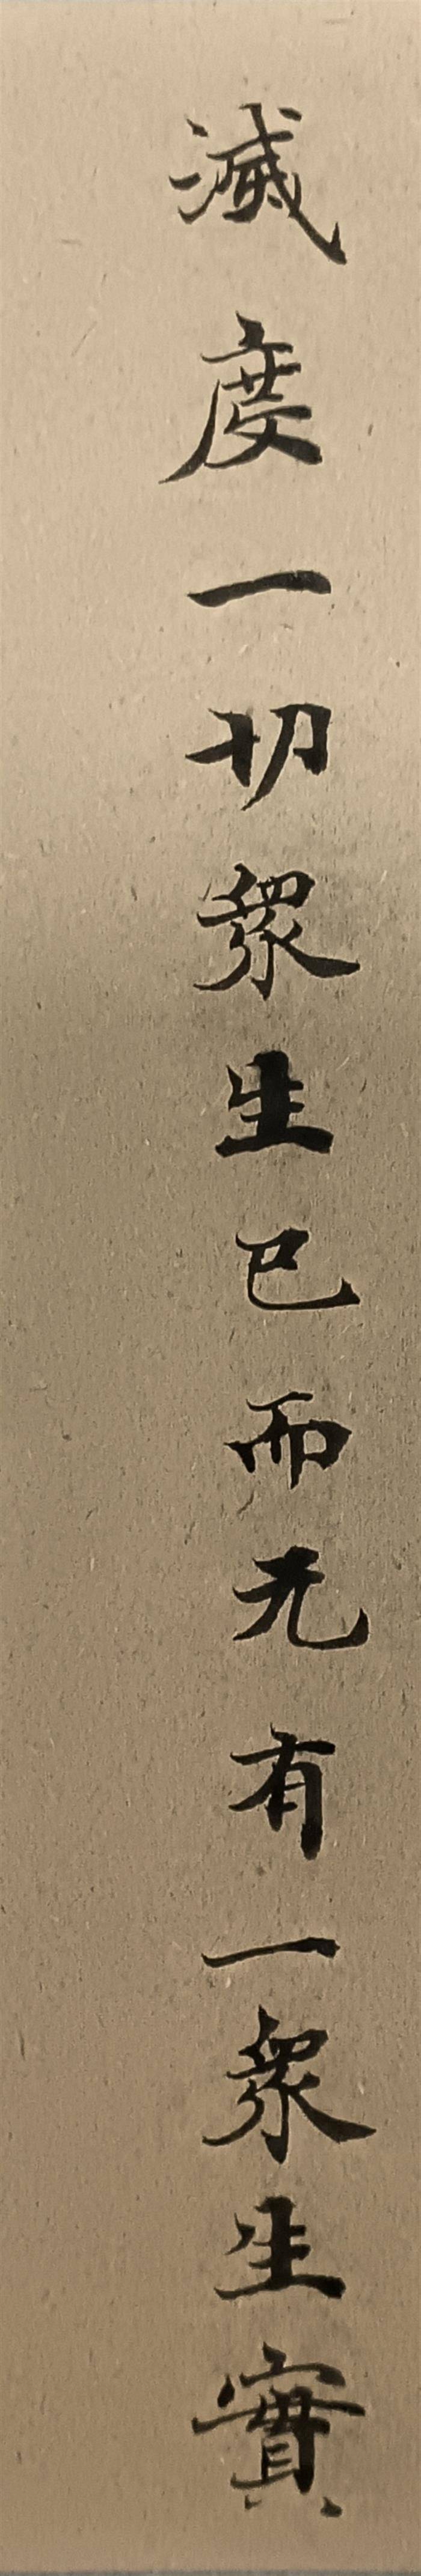 滅度一切眾生已而无有一眾生實